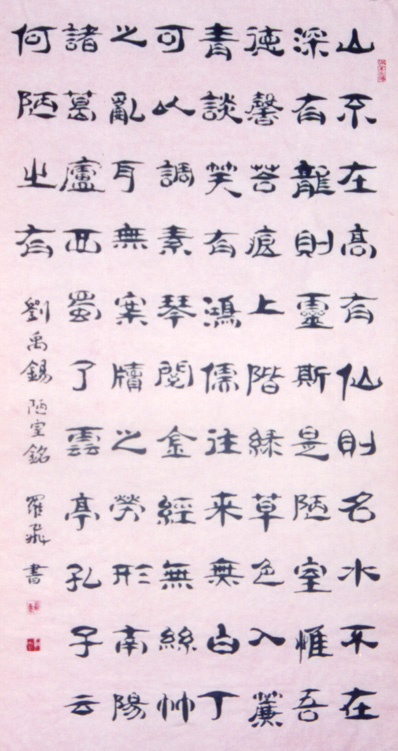 山不在高有仙則名水不在
深有龍則靈斯是陋室惟吾
徳馨苔痕上階緑草色入簾
青談笑有鴻儒往来無白丁
可以調素琴閲金經無絲竹
之亂耳無案牘之勞形南陽
諸葛廬西蜀了雲亭孔子云
何陋之有 劉禹錫陋室銘 羅 書